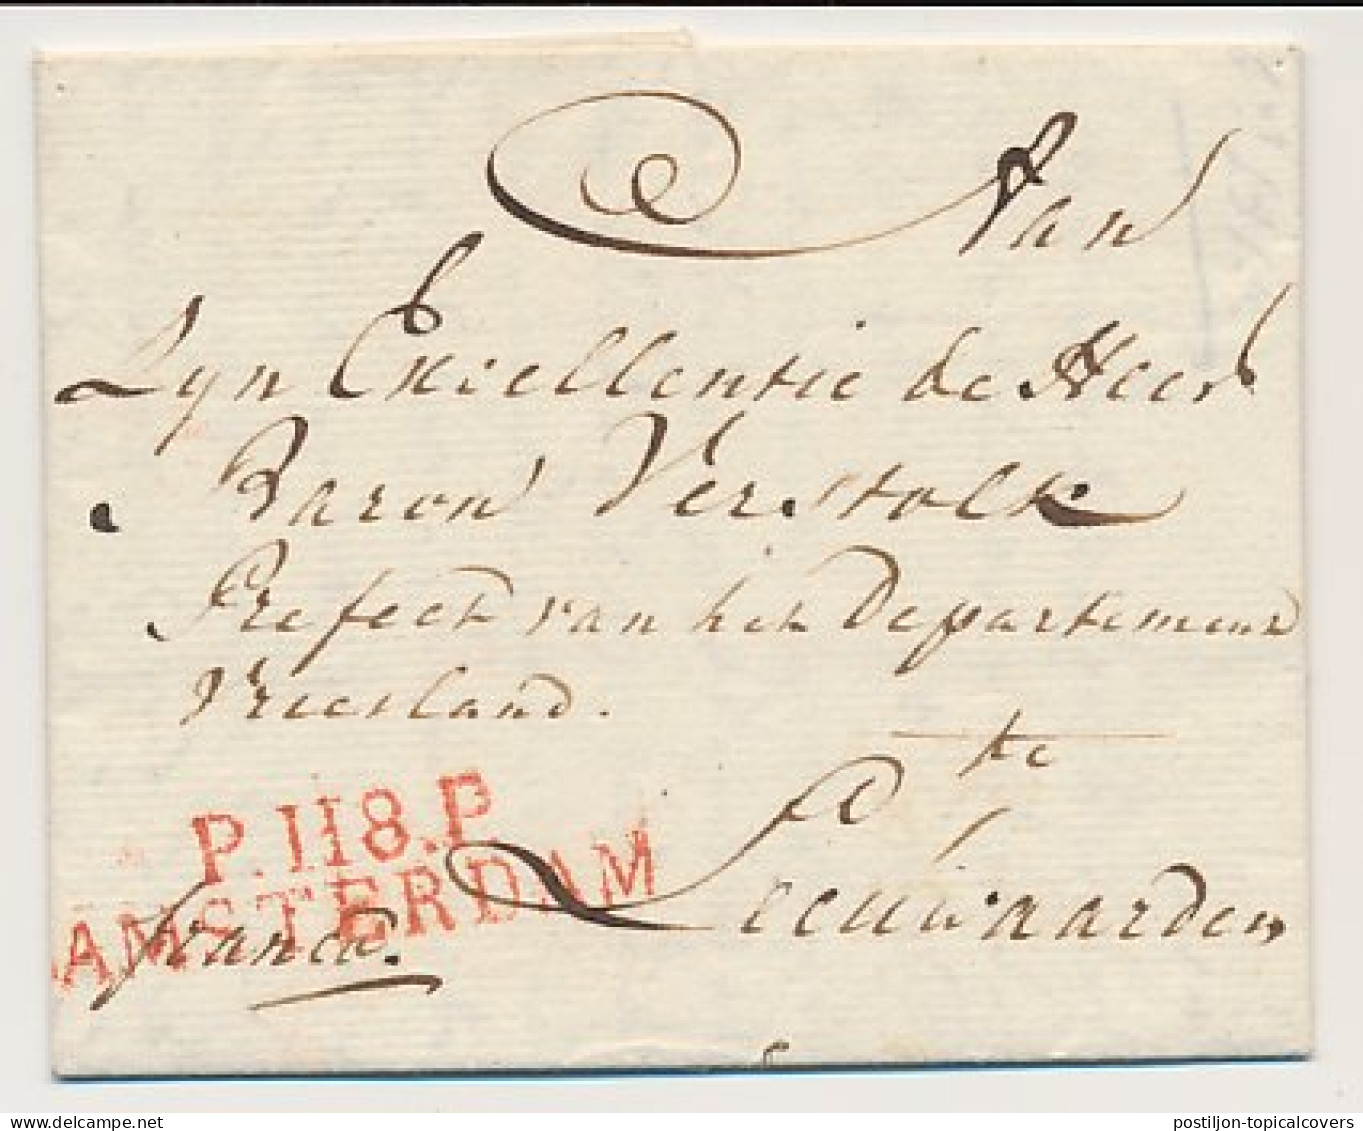 Aan
Zyn Excellentie de Heer
Baron Verstolk
Prefect van het Departement
Vriesland.
te
Leeuwaarden
P.118.P.
AMSTERDAM
franco.
postiljon-topicalcovers